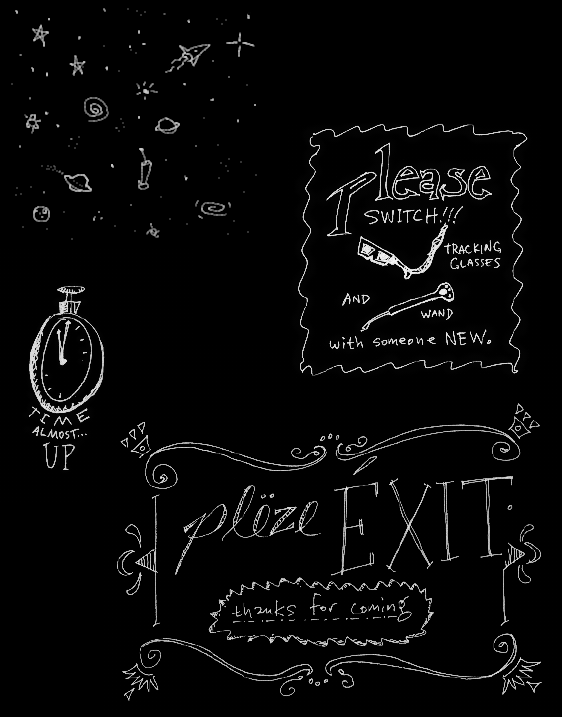 Please
SWITCH!!!
TRACKING
GLASSES
AND
WAND
with someone NEW.
TIME
ALMOST...
UP
plëze ÉXIT.
thanks for coming